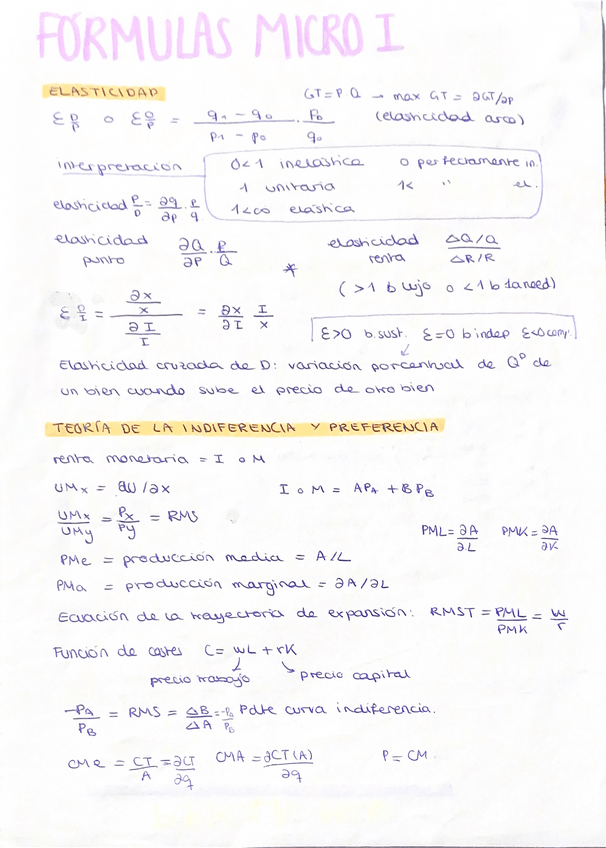 FÓRMULAS MICRO I
ELASTICIDAD
GT = P Q → max GT = ∂GT/∂p
ε D/P o ε O/P = q₁ - q₀ / p₁ - p₀ · p₀ / q₀ (elasticidad arco)
interpretación
0<1 inelástica 0 perfectamente in.
1 unitaria 1< " el.
1<∞ elástica
elasticidad P/D = ∂q/∂p · p/q
elasticidad punto ∂Q/∂P · P/Q
*
elasticidad renta ΔQ/Q / ΔR/R
(>1 b lujo o <1 b 1a need)
ε D/I = ∂x/x / ∂I/I = ∂x/∂I · I/x
ε>0 b.sust. ε=0 b indep ε<0 comp.
Elasticidad cruzada de D: variación porcentual de Qᴰ de
un bien cuando sube el precio de otro bien
TEORÍA DE LA INDIFERENCIA Y PREFERENCIA
renta monetaria = I o M
UMx = ∂U/∂x I o M = APA + BPB
UMx/UMy = Px/Py = RMS
PML = ∂A/∂L PMK = ∂A/∂K
PMe = producción media = A/L
PMa = producción marginal = ∂A/∂L
Ecuación de la trayectoria de expansión: RMST = PML/PMK = w/r
Función de costes C = wL + rK
precio trabajo precio capital
-PA/PB = RMS = ΔB/ΔA = -PA/PB Pdte curva indiferencia.
CMe = CT/A = ∂CT/∂q CMA = ∂CT(A)/∂q P = CM.